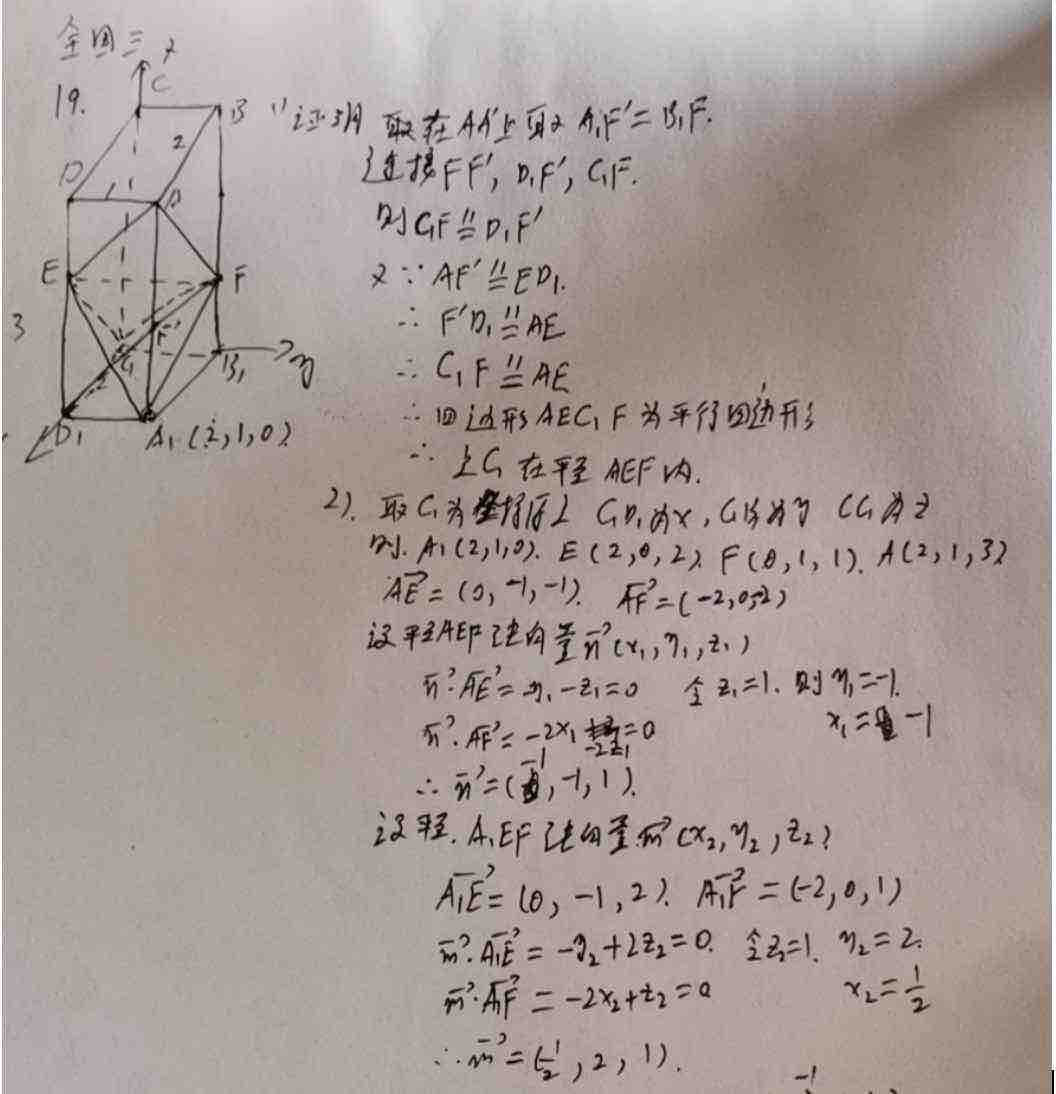 全国三
19.
z
C
B
2
D
1
A
E
F
3
F'
C₁
2
B₁
y
D₁
A₁(2,1,0)
1)证明 取在AA'上取A₁F'=B₁F.
连接FF', D₁F', C₁F.
则C₁F∥=D₁F'
又∵AF'∥=ED₁.
∴F'D₁∥=AE
∴C₁F∥=AE
∴四边形AEC₁F为平行四边形
∴点C₁在平面AEF内.
2). 取C₁为坐标原点 C₁D₁为x, C₁B₁为y CC₁为z
则. A₁(2,1,0). E(2,0,2) F(0,1,1). A(2,1,3)
AE⃗=(0,-1,-1). AF⃗=(-2,0,-2)
设平面AEF法向量n⃗(x₁,y₁,z₁)
n⃗·AE⃗=-y₁-z₁=0 令z₁=1. 则y₁=-1.
n⃗·AF⃗=-2x₁-2z₁=0 x₁=-1
∴n⃗=(-1,-1,1).
设平面.A₁EF法向量m⃗(x₂,y₂,z₂)
A₁E⃗=(0,-1,2). A₁F⃗=(-2,0,1)
m⃗·A₁E⃗=-y₂+2z₂=0. 令z₂=1. y₂=2.
m⃗·A₁F⃗=-2x₂+z₂=0 x₂=1/2
∴m⃗=(1/2,2,1).